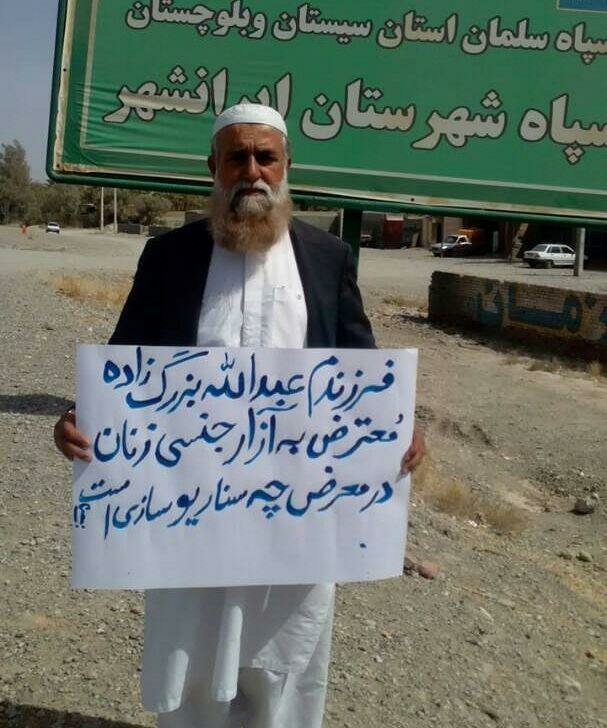 سپاه سلمان استان سیستان وبلوچستان
سپاه شهرستان ایرانشهر
فرزندم عبدالله بزرگ زاده
مُعترض به آزار جنسی زنان
در معرض چه سناریو سازی است ؟!